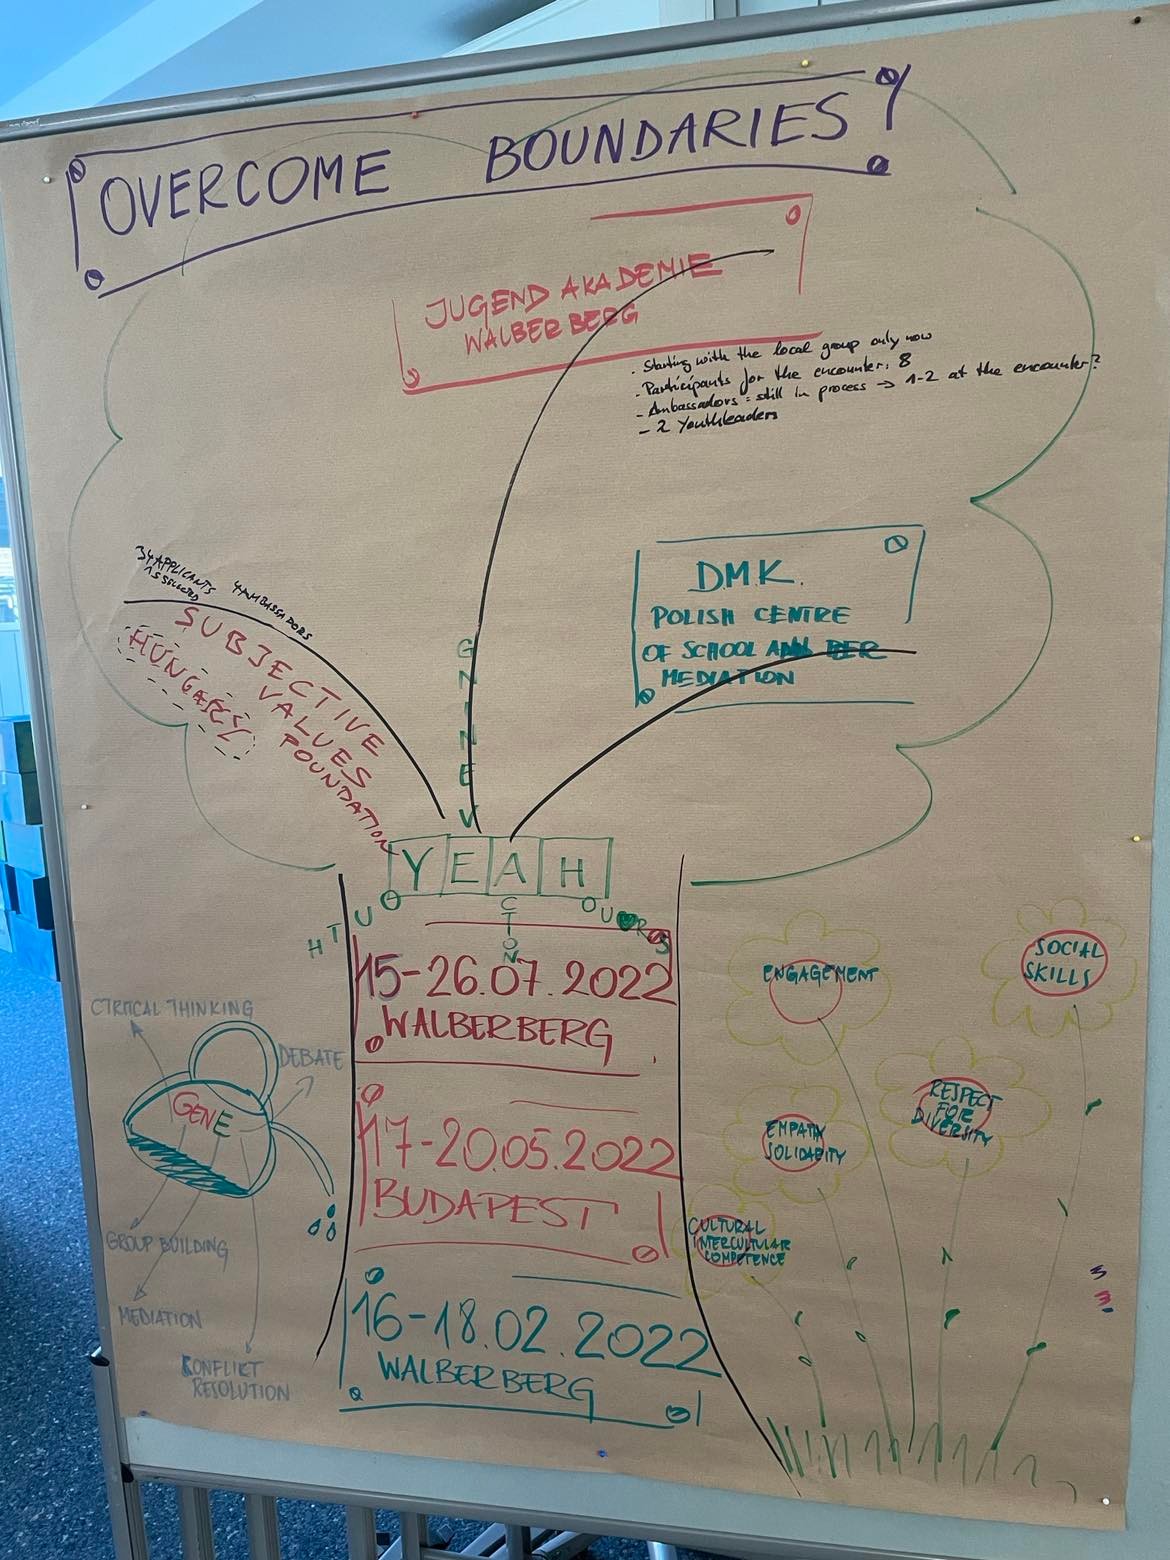 OVERCOME BOUNDARIES!
JUGEND AKADEMIE
WALBERBERG
- Starting with the local group only now
- Participants for the encounter: 8
- Ambassadors = still in process → 1-2 at the encounter?
- 2 Youthleaders
34 APPLICANTS
15 SELECTED
4 AMBASSADORS
SUBJECTIVE
VALUES
FOUNDATION
HUNGARY
D.M.K.
POLISH CENTRE
OF SCHOOL
MEDIATION
GNINEV
YEAH
HTUO
CTION
OURS
15-26.07.2022
WALBERBERG
17-20.05.2022
BUDAPEST
16-18.02.2022
WALBERBERG
CTRITICAL THINKING
DEBATE
GENE
GROUP BUILDING
MEDIATION
KONFLIKT
RESOLUTION
ENGAGEMENT
SOCIAL
SKILLS
RESPECT
FOR
DIVERSITY
EMPATHY
SOLIDARITY
CULTURAL
INTERCULTURAL
COMPETENCE